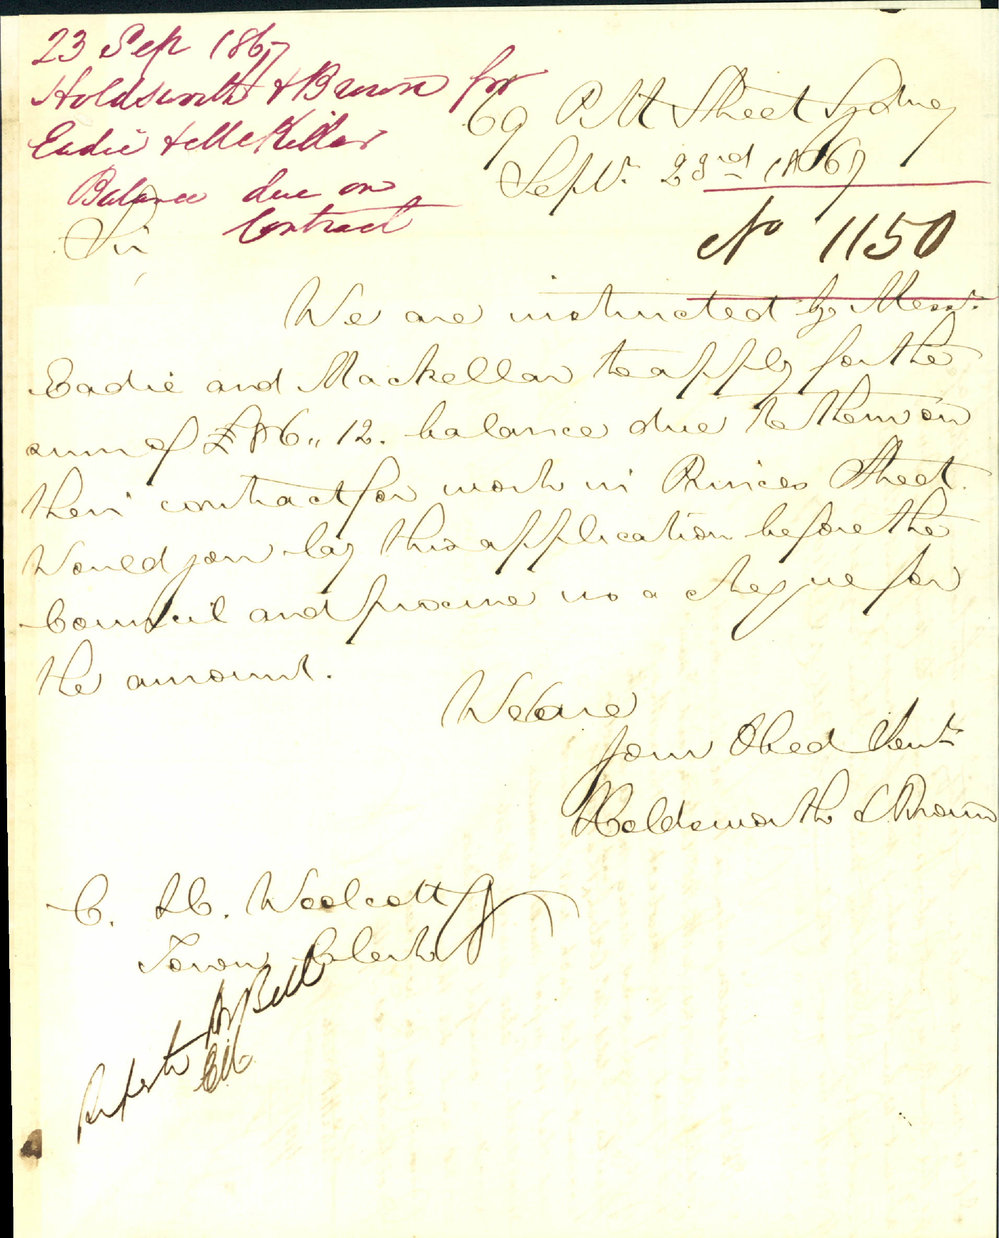 23 Sep 1867
Holdsworth & Brown for
Eadie & McKellar
Balance due on
Contract
69 Pitt Street Sydney
Septr. 23rd 1867
No 1150
Sir
We are instructed by Messrs.
Eadie and Mackellar to apply for the
sum of £86,, 12. balance due to them on
their contract for work in Princes Street.
Would you lay this application before the
Council and procure us a cheque for
the amount.
We are
Your Obed Servts
Holdsworth & Brown
C. H. Woolcott
Town Clerk
Refer to Mr Bell